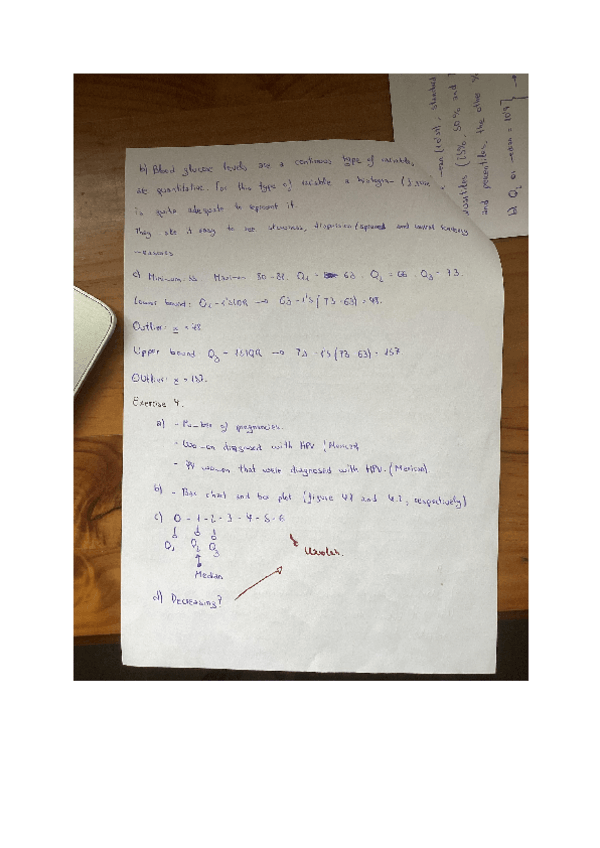 b) Blood glucose levels are a continuous type of variable,
are quantitative. For this type of variable a histogram (figure
is quite adequate to represent it.
They make it easy to see skewness, dispersion (spread) and central tendency
measures
c) Minimum: 55. Maximum: 80-82. Q1 = 63. Q2 = 66. Q3 = 73.
Lower bound: Q1 - 1'5IQR → 63 - 1'5 (73-63) = 48.
Outlier: x < 48
Upper bound: Q3 1'5IQR → 73 1'5 (73-63)
Outlier: x
Exercise 4.
a) - Number of pregnancies.
- Women diagnosed with HPV (Mexican)
- women that were diagnosed with HPV. (Mexican)
b) - Bar chart and box plot (figure 4.1 and 4.2, respectively)
c) 0 - 1 - 2 - 3 - 4 - 5 - 6
Q1 Q2 Q3
Median
d) Decreasing?
(25%, 50% and
and percentiles, the other
b) Q2 or median = 10'9}